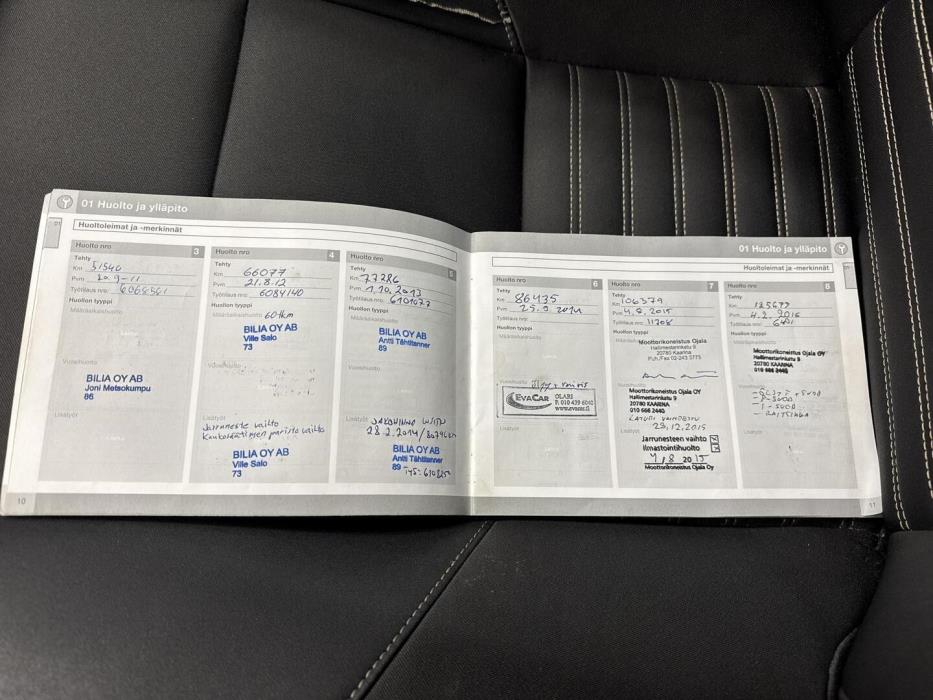 01 Huolto ja ylläpito
01
Huoltoleimat ja -merkinnät
Huolto nro 3
Tehty
Km 51540
Pvm
Työtilaus nro:
Huollon tyyppi
Määräaikaishuolto
Vuosihuolto
BILIA OY AB
Joni Metsokumpu
86
Lisätyöt
Huolto nro 4
Tehty
Km 66077
Pvm 21.8.12
Työtilaus nro: 6084140
Huollon tyyppi
Määräaikaishuolto 60tkm
BILIA OY AB
Ville Salo
73
Vuosihuolto
Lisätyöt
Jarruneste vaihto
Kaukosäätimen paristo vaihto
BILIA OY AB
Ville Salo
73
Huolto nro 5
Tehty
Km 77286
Pvm 1.10.2013
Työtilaus nro: 6101077
Huollon tyyppi
Määräaikaishuolto
BILIA OY AB
Antti Tähtitanner
89
Vuosihuolto
Lisätyöt
28.2.2014
BILIA OY AB
Antti Tähtitanner
89
10
01 Huolto ja ylläpito
Huoltoleimat ja -merkinnät
Huolto nro 6
Tehty
Km 86435
Pvm 25.9.2014
Työtilaus nro:
Huollon tyyppi
Määräaikaishuolto
Vuosihuolto
EVACAR
OLARI
P. 010 439 6040
www.evacar.fi
Lisätyöt
Huolto nro 7
Tehty
Km 106379
Pvm 4.8.2015
Työtilaus nro: 11708
Huollon tyyppi
Moottorikoneistus Ojala
Hallimestarinkatu 9
20780 Kaarina
Puh./Fax 02-243 5775
Moottorikoneistus Ojala OY
Hallimestarinkatu 9
20780 KAARINA
010 666 2440
23.12.2015
Jarrunesteen vaihto
Ilmastointihuolto
4 / 8 2015
Moottorikoneistus Ojala Oy
Huolto nro 8
Tehty
Km 125677
Pvm 4.2.2016
Työtilaus nro:
Huollon tyyppi
Moottorikoneistus Ojala OY
Hallimestarinkatu 9
20780 KAARINA
010 666 2440
Lisätyöt
11